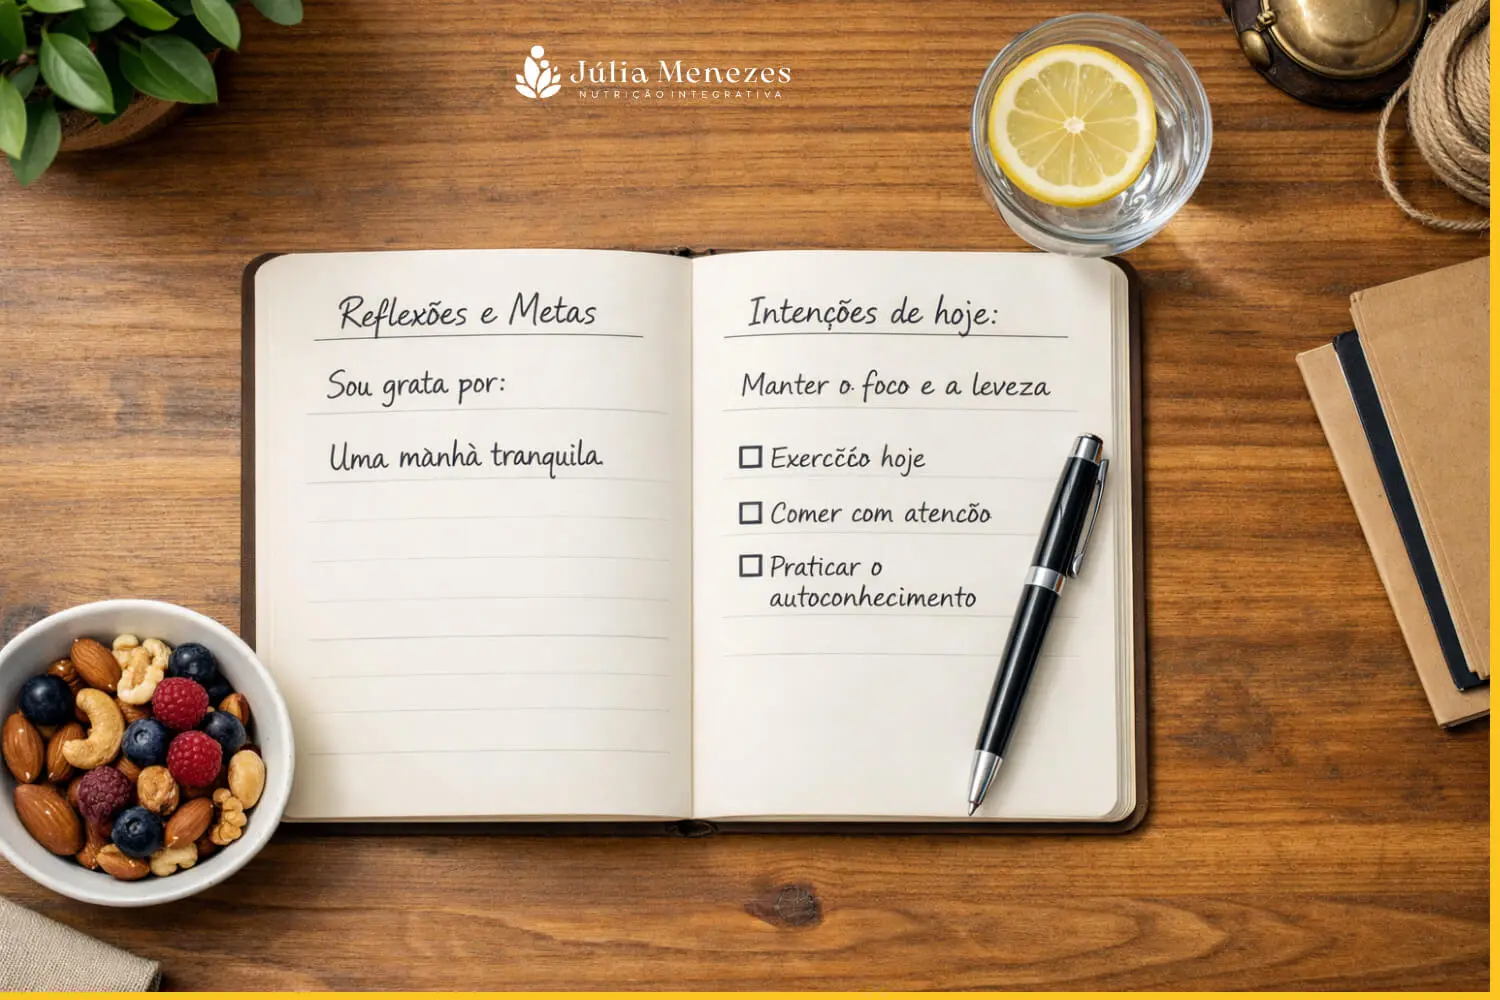 Júlia Menezes
NUTRIÇÃO INTEGRATIVA
Reflexões e Metas
Sou grata por:
Uma mànhà tranquila.
Intenções de hoje:
Manter o foco e a leveza
Exercc̃ćo hoje
Comer com atencõo
Praticar o
autoconhecimento